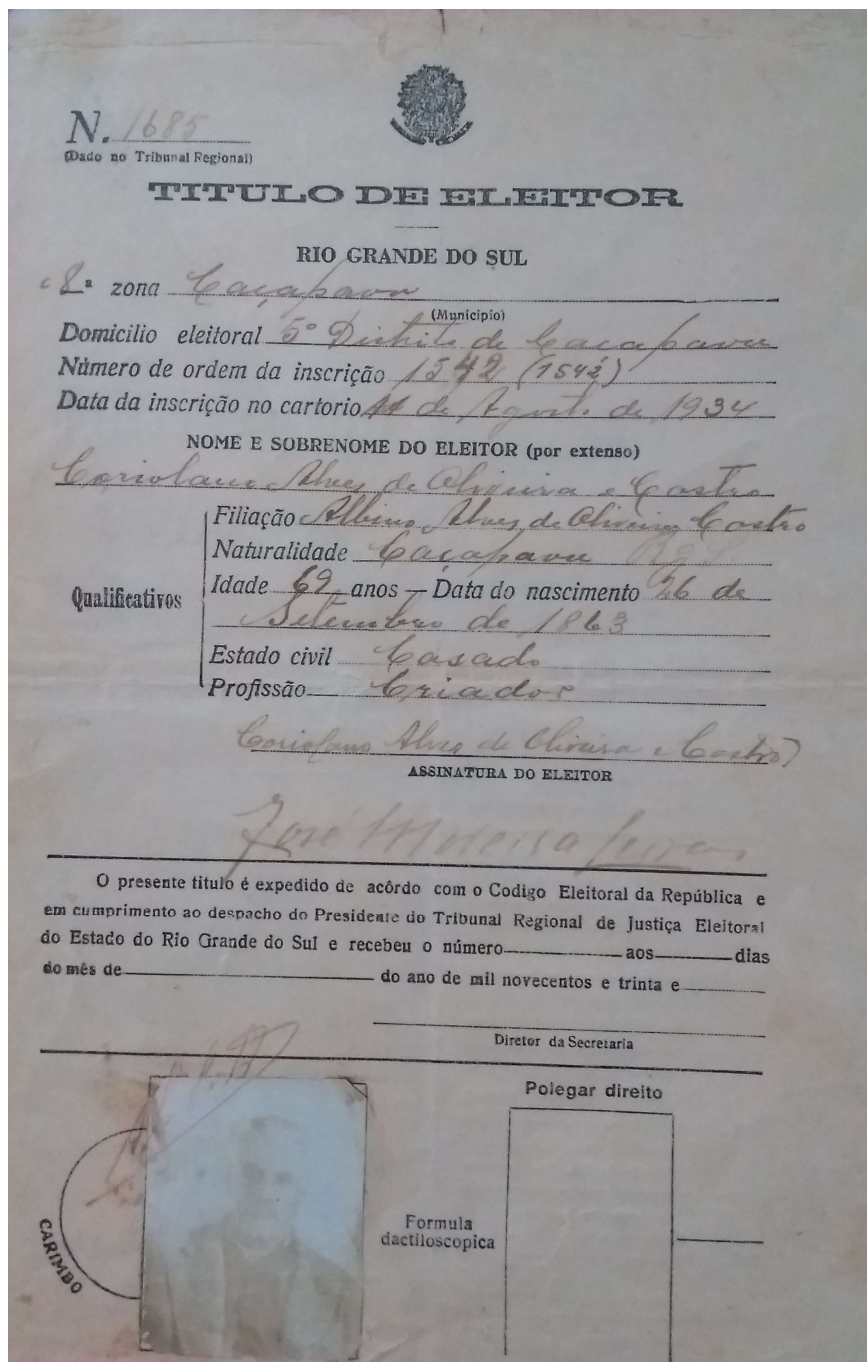 N. 1685
(Dado no Tribunal Regional)
TITULO DE ELEITOR
RIO GRANDE DO SUL
8ª zona Caçapava
(Municipio)
Domicilio eleitoral 5º Districto de Caçapava
Número de ordem da inscrição 1542 (1542)
Data da inscrição no cartorio 11 de Agosto de 1934
NOME E SOBRENOME DO ELEITOR (por extenso)
Coriolano Alves de Oliveira e Castro
Qualificativos
Filiação Albino Alves de Oliveira Castro
Naturalidade Caçapava
Idade 69 anos — Data do nascimento 26 de
Setembro de 1863
Estado civil Casado
Profissão Criador
Coriolano Alves de Oliveira e Castro
ASSINATURA DO ELEITOR
José Moreira
O presente titulo é expedido de acôrdo com o Codigo Eleitoral da República e
em cumprimento ao despacho do Presidente do Tribunal Regional de Justiça Eleitoral
do Estado do Rio Grande do Sul e recebeu o número aos dias
do mês de do ano de mil novecentos e trinta e
Diretor da Secretaria
Polegar direito
CARIMBO
Formula
dactiloscopica